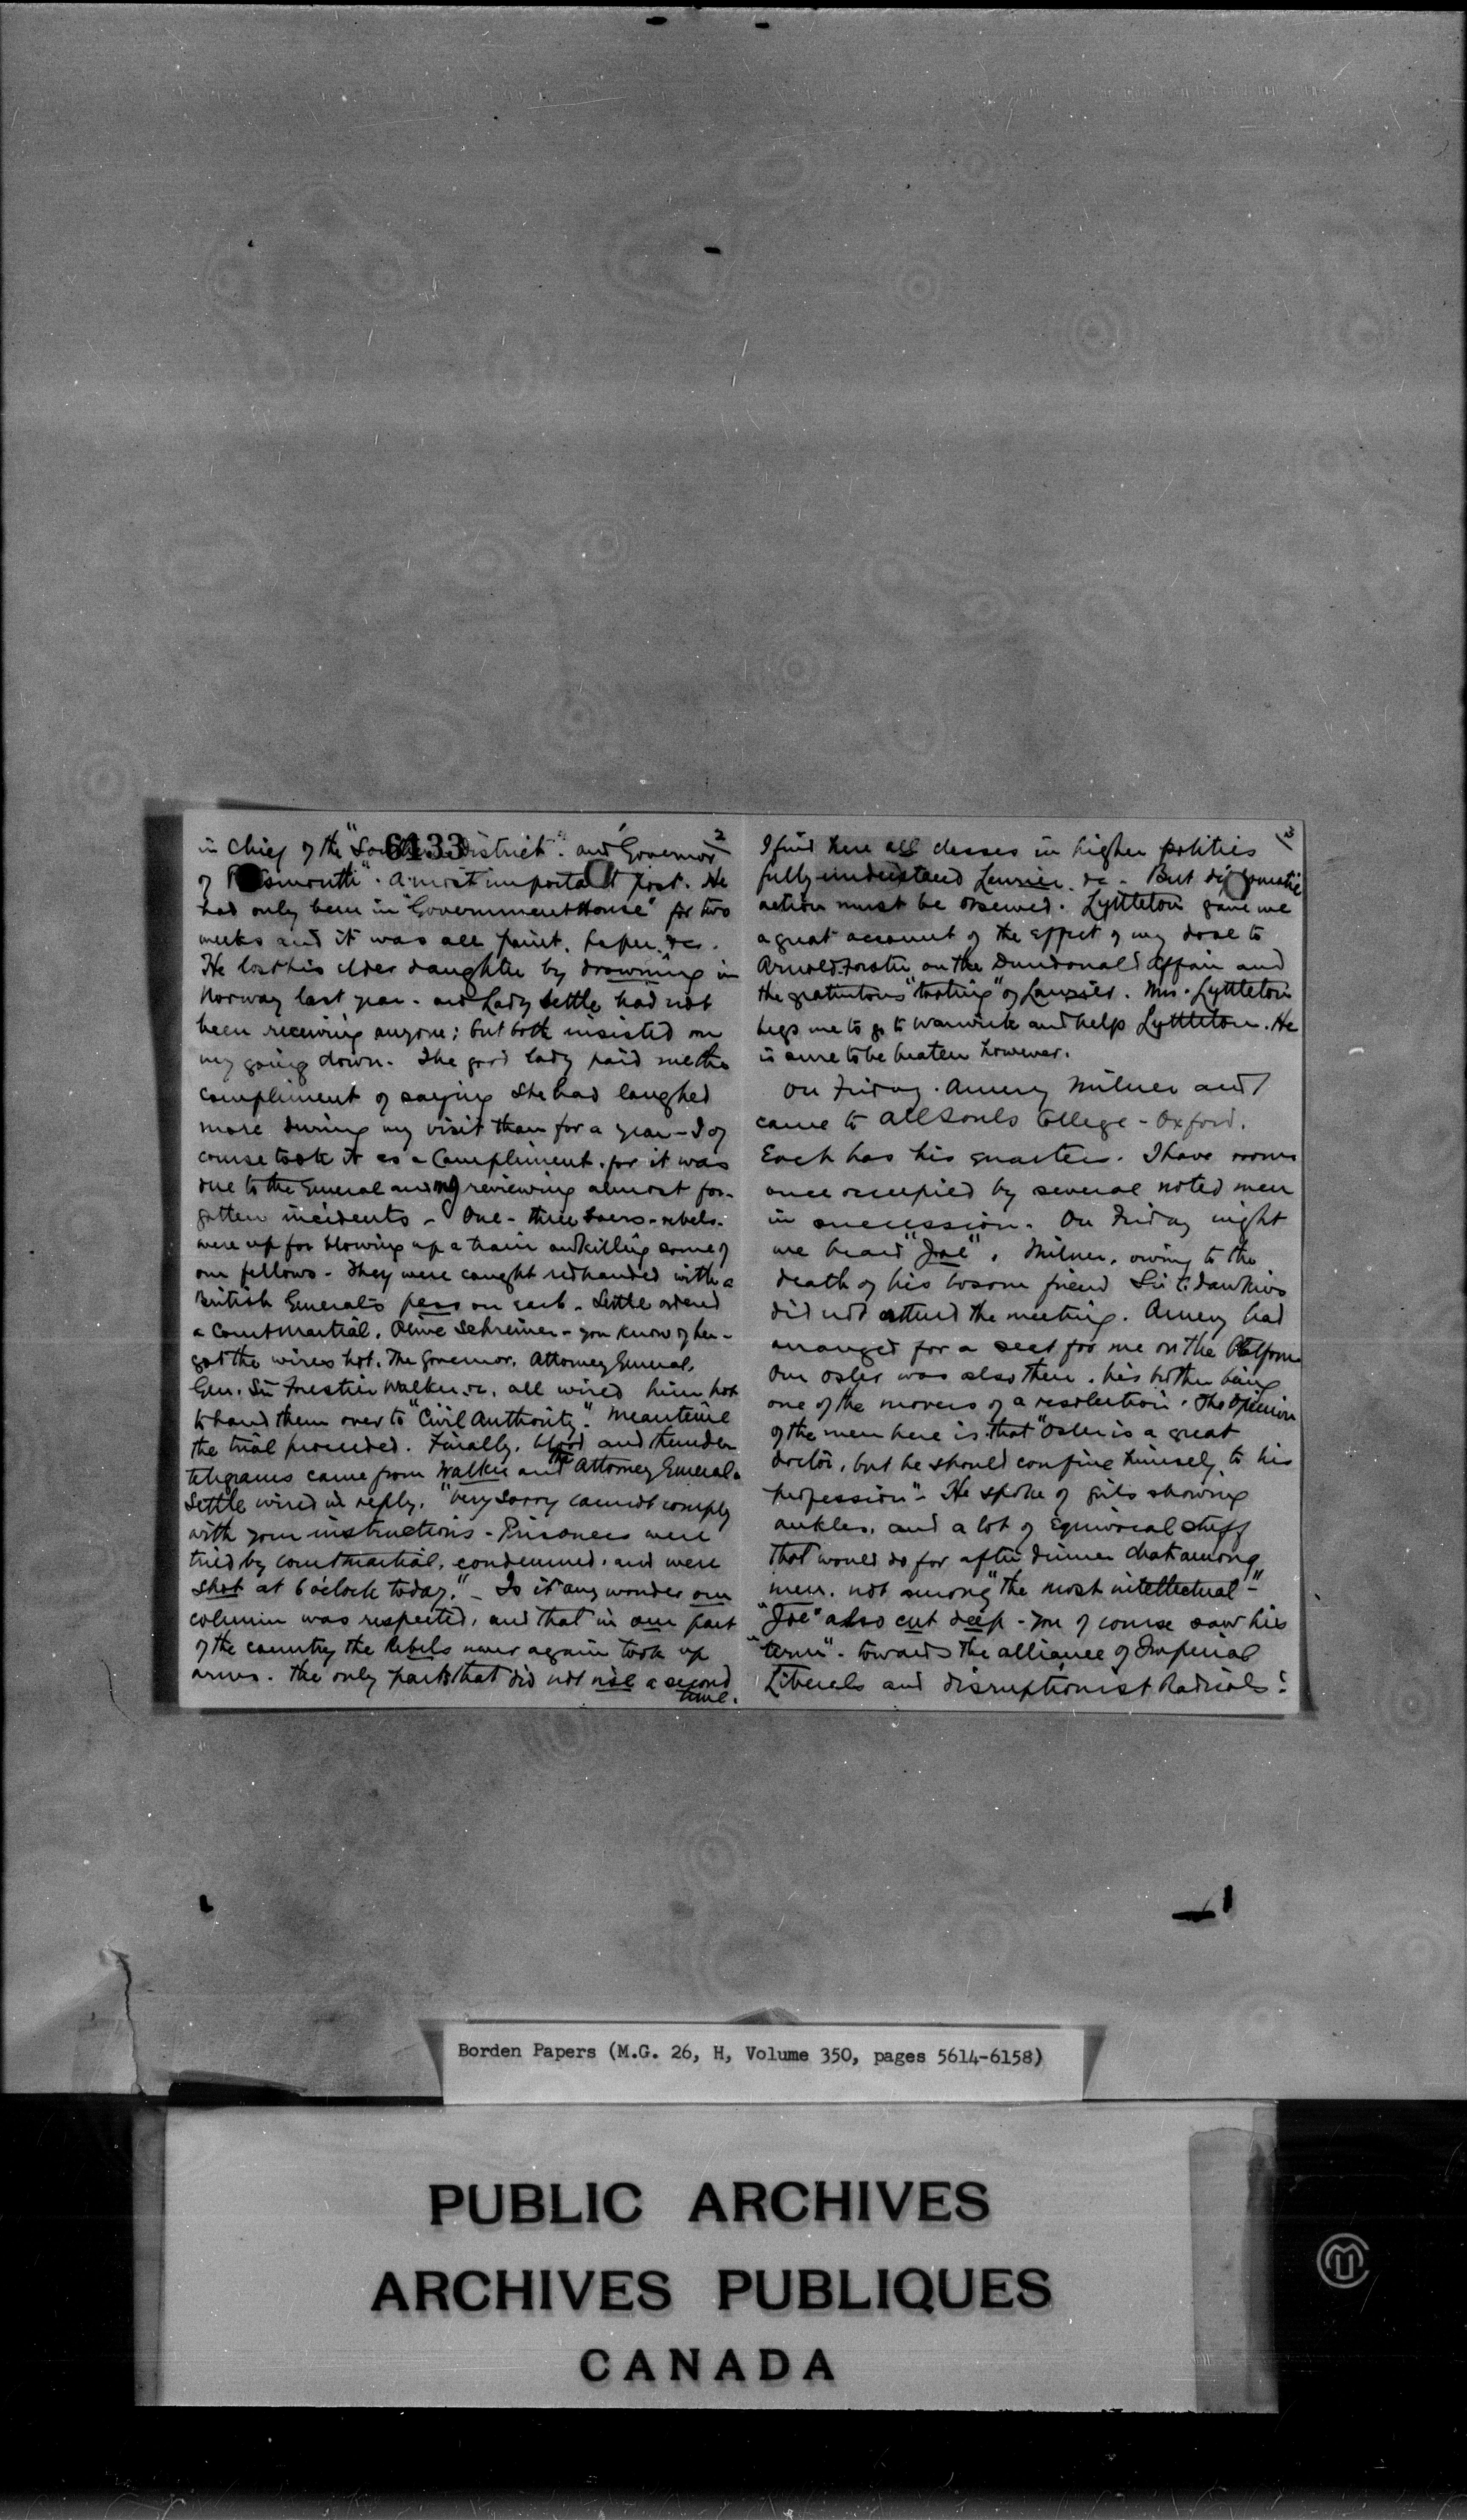 2
6133
in Chief of the "Southern District". and Governor
of Portsmouth". A most important post. He
had only been in "Government House" for two
weeks and it was all paint, paper &c.
He lost his elder daughter by drowning in
Norway last year. and Lady Settle had not
been receiving anyone; but both insisted on
my going down. The good lady paid me the
compliment of saying she had laughed
more during my visit than for a year - I of
course took it as a compliment. for it was
due to the General and me reviewing almost for-
gotten incidents - One - three Boers - rebels -
were up for blowing up a train and killing some of
our fellows - They were caught redhanded with a
British General's pass on each. Settle ordered
a Courtmartial. Olive Schreiner - you know of her -
got the wires hot. The Governor, Attorney General,
Gen. Sir Forestier Walker &c. all wired him not
to hand them over to "Civil Authority". Meantime
the trial proceeded. Finally, blood and thunder
telegrams came from Walker and the Attorney General.
Settle wired in reply. "Very sorry cannot comply
with your instructions - Prisoners were
tried by courtmartial, condemned, and were
shot at 6 o'clock today." - Is it any wonder our
column was respected, and that in our part
of the country the Rebels never again took up
arms. The only parts that did not rise a second
time.
3
I find here all classes in higher politics
fully understand Laurier &c - But diplomatic
action must be observed. Lyttleton gave me
a great account of the effect of my dose to
Arnold Forster on the Dundonald Affair and
the gratuitous "tooting" of Laurier. Mrs. Lyttleton
begs me to go to Warwick and help Lyttleton. He
is sure to be beaten however.
On Friday. Amery Milner and I
came to All Souls College - Oxford.
Each has his quarters. I have rooms
once occupied by several noted men
in succession. On Friday night
we heard "Joe". Milner, owing to the
death of his bosom friend Sir C. Dawkins
did not attend the meeting. Amery had
arranged for a seat for me on the Platform
Our Osler was also there. his brother being
one of the movers of a resolution. The opinion
of the men here is that "Osler is a great
doctor, but he should confine himself to his
profession". He spoke of girls showing
ankles, and a lot of equivocal stuff
that would do for after dinner chat among
men. not among "the most intellectual -"
"Joe" also cut deep - you of course saw his
"term". towards the alliance of Imperial
Liberals and disruptionist Radicals:
Borden Papers (M.G. 26, H, Volume 350, pages 5614-6158)
PUBLIC ARCHIVES
ARCHIVES PUBLIQUES
CANADA